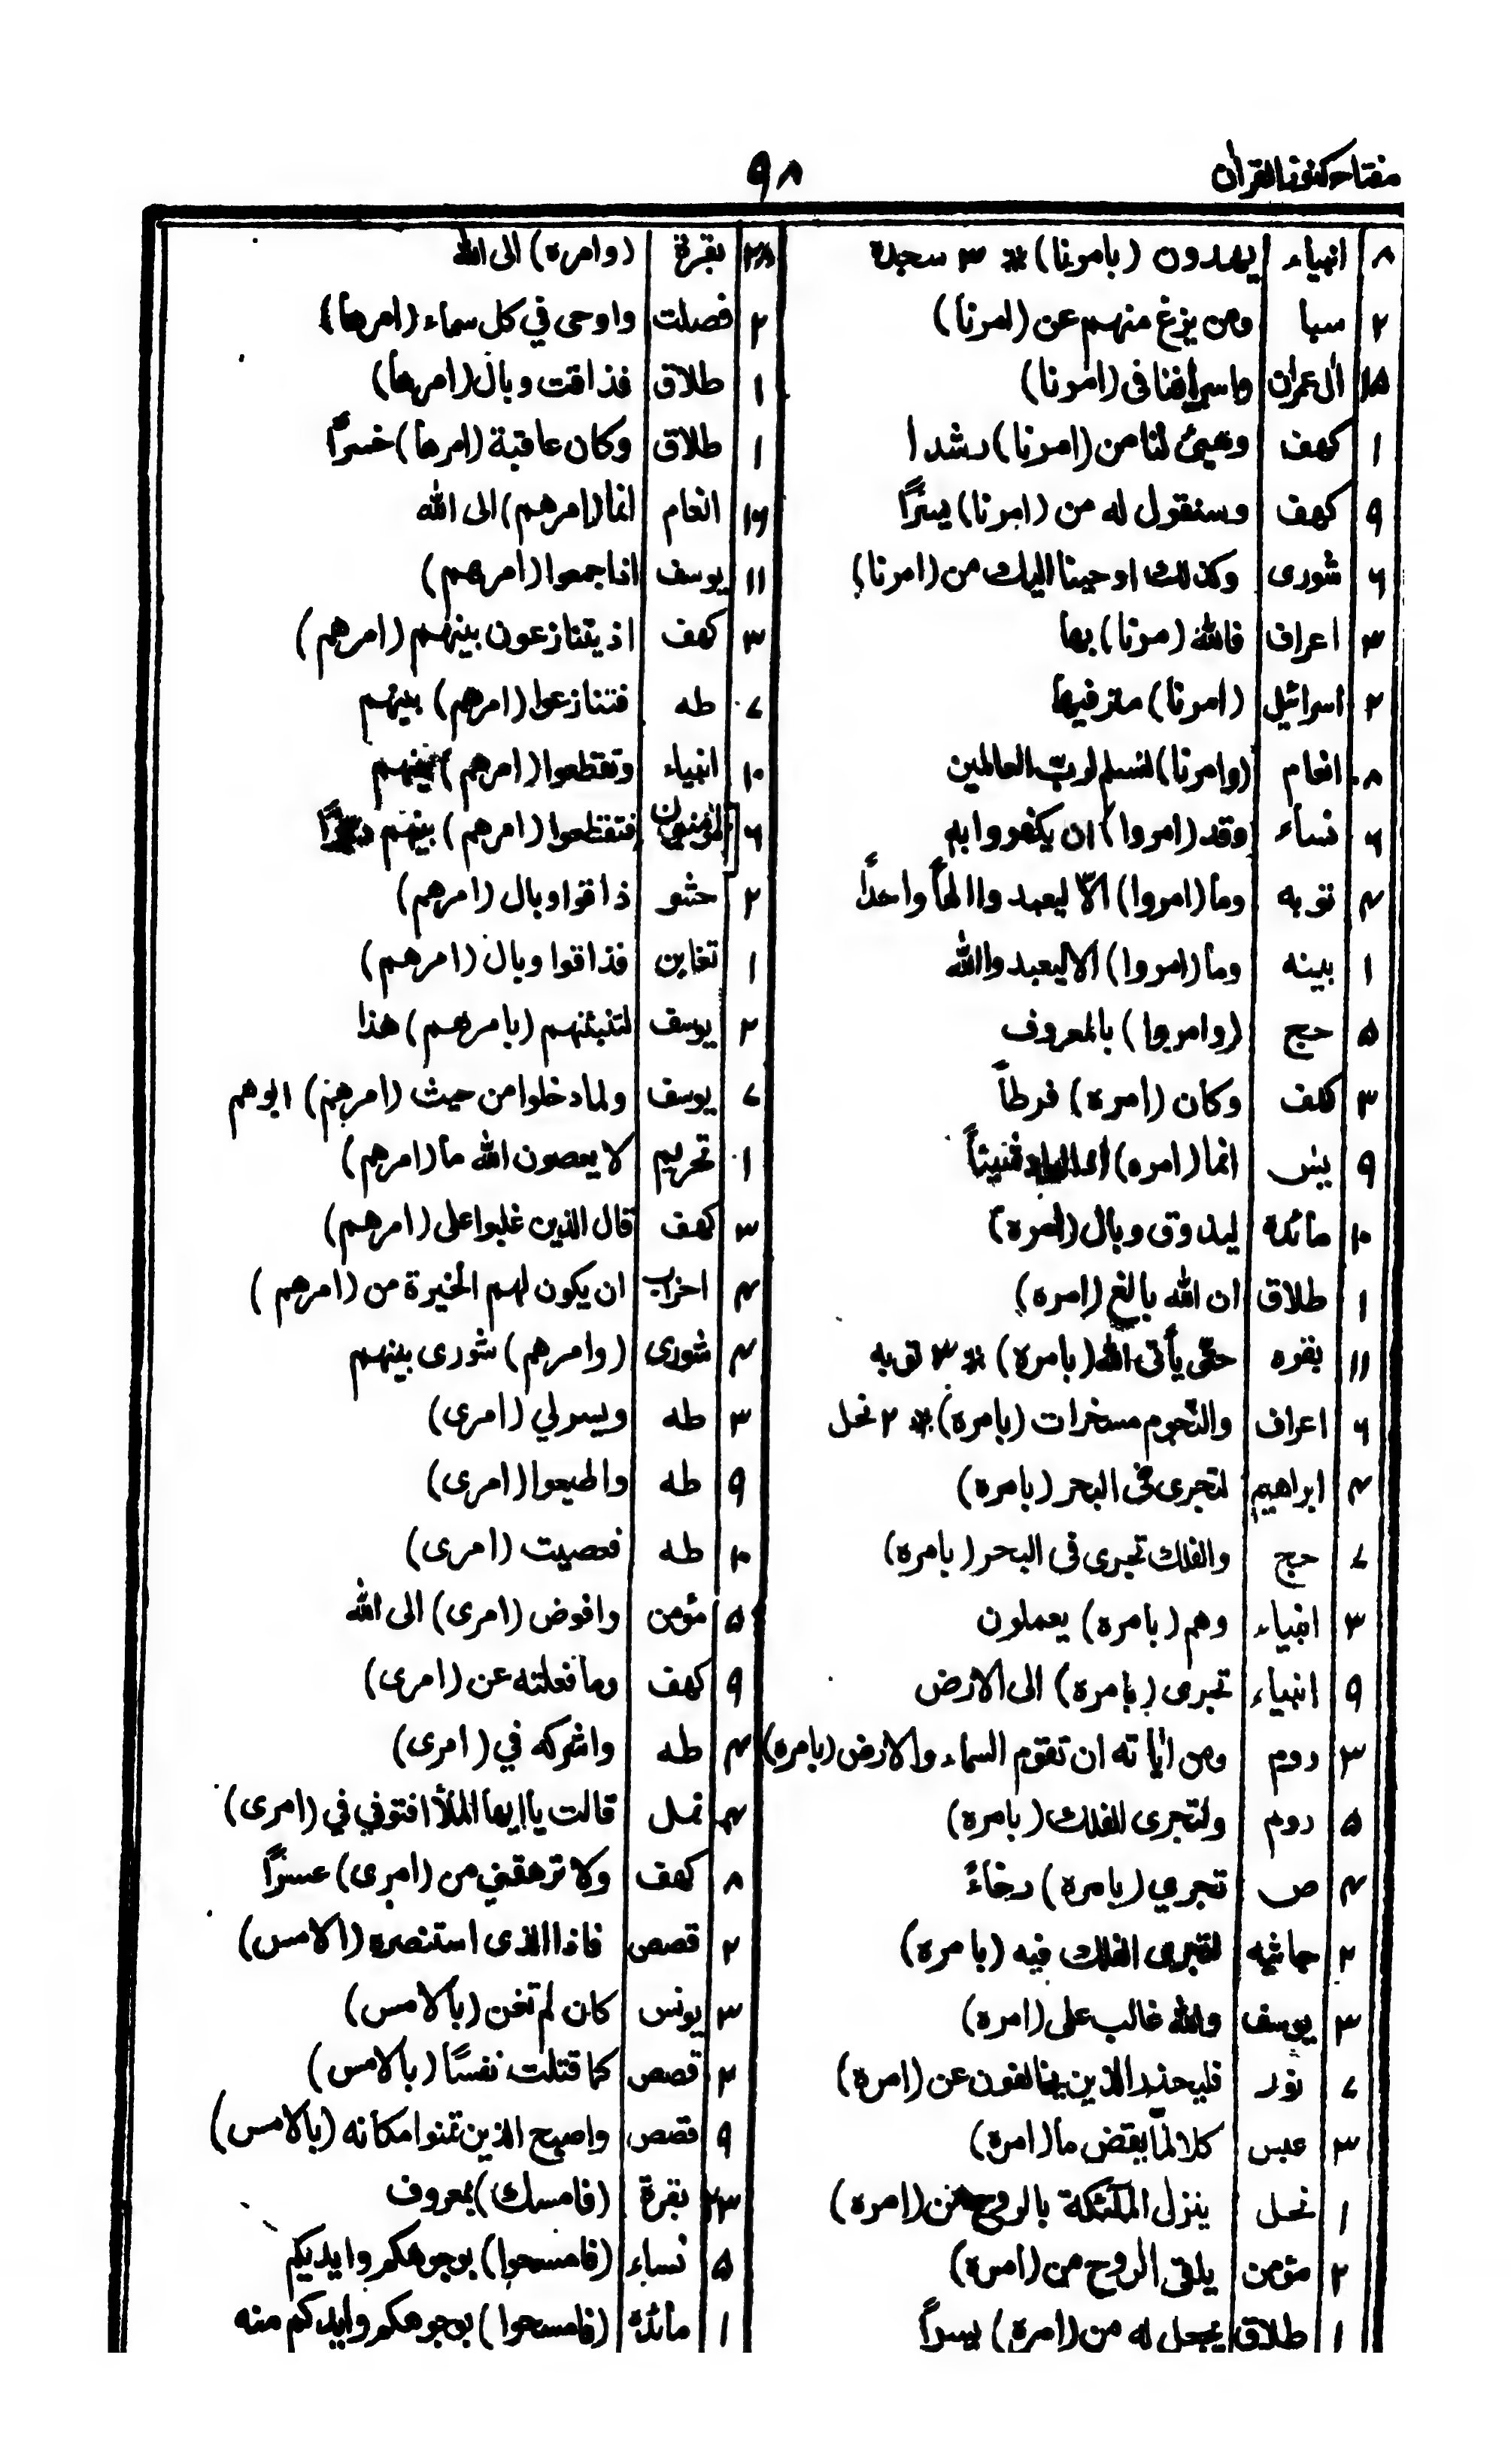 مفتاح كنوز القرآن
۹۸
۸ انبياء يهدون (بامرنا) * ۳ سجدة
۲ سبا ومن يزغ منهم عن (امرنا)
۱۵ آل عمران واسرافنا فى (امرنا)
۱ كهف وهيئ لنا من (امرنا) رشدا
۹ كهف وسنقول له من (امرنا) يسرًا
۶ شورى وكذلك اوحينا اليك من (امرنا)
۳ اعراف فالله (مرنا) بها
۲ اسرائيل (امرنا) مترفيها
۸ انعام (وامرنا) لنسلم لرب العالمين
۶ نساء وقد (امروا) ان يكفروا به
۴ توبه وما (امروا) الّا ليعبدوا الهاً واحداً
۱ بينه وما (امروا) الا ليعبدوا الله
۵ حج (وامروا) بالمعروف
۳ كهف وكان (امره) فرطاً
۹ يس انما (امره)
۱۰ مائدة ليذوق وبال (امره)
۱ طلاق ان الله بالغ (امره)
۱۱ بقره حتى يأتى الله (بامره) * ۳ توبه
۶ اعراف والنجوم مسخرات (بامره) * ۲ نحل
۴ ابراهيم لتجرى فى البحر (بامره)
۷ حج والفلك تجرى فى البحر (بامره)
۳ انبياء وهم (بامره) يعملون
۹ انبياء تجرى (بامره) الى الارض
۳ روم ومن اياته ان تقوم السماء والارض (بامره)
۵ روم ولتجرى الفلك (بامره)
۴ ص تجري (بامره) رخاءً
۲ جاثيه لتجرى الفلك فيه (بامره)
۳ يوسف والله غالب على (امره)
۷ نور فليحذر الذين يخالفون عن (امره)
۳ عبس كلا لمّا يقض ما (امره)
۱ نحل ينزل الملئكة بالروح من (امره)
۲ مؤمن يلقى الروح من (امره)
۱ طلاق يجعل له من (امره) يسراً
۳۸ بقرة (وامره) الى الله
۲ فصلت واوحى في كل سماء (امرها)
۱ طلاق فذاقت وبال (امرها)
۱ طلاق وكان عاقبة (امرها) خسراً
۱۶ انعام انما (امرهم) الى الله
۱۱ يوسف اذا جمعوا (امرهم)
۳ كهف اذ يتنازعون بينهم (امرهم)
۷ طه فتنازعوا (امرهم) بينهم
۱۰ انبياء وتقطعوا (امرهم) بينهم
۶ المؤمنون فتقطعوا (امرهم) بينهم
۲ حشر ذاقوا وبال (امرهم)
۱ تغابن فذاقوا وبال (امرهم)
۲ يوسف لتنبئنهم (بامرهم) هذا
۷ يوسف ولما دخلوا من حيث (امرهم) ابوهم
۱ تحريم لا يعصون الله ما (امرهم)
۳ كهف قال الذين غلبوا على (امرهم)
۴ احزاب ان يكون لهم الخيرة من (امرهم)
۴ شورى (وامرهم) شورى بينهم
۳ طه ويسرلي (امرى)
۹ طه واطيعوا (امرى)
۱۰ طه فعصيت (امرى)
۵ مؤمن وافوض (امرى) الى الله
۹ كهف وما فعلته عن (امرى)
۴ طه واشركه في (امرى)
۴ نمل قالت يا ايها الملأ افتوني في (امرى)
۸ كهف ولا ترهقني من (امرى) عسرًا
۲ قصص فاذا الذى استنصره (الامس)
۳ يونس كان لم تغن (بالامس)
۲ قصص كما قتلت نفسًا (بالامس)
۹ قصص واصبح الذين تمنوا مكانه (بالامس)
۲۳ بقرة (فامسك) بمعروف
۵ نساء (فامسحوا) بوجوهكم وايديكم
۱ مائدة (فامسحوا) بوجوهكم وايديكم منه